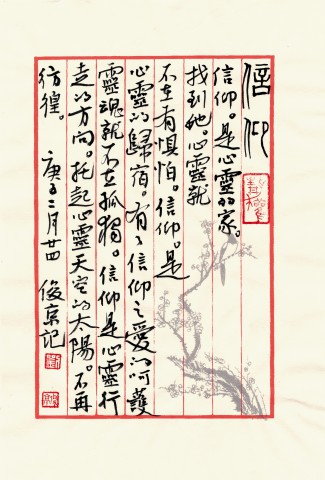 信仰
信仰。是心靈的家。
找到她。心靈就
不在有惧怕。信仰。是
心靈的歸宿。有了信仰之愛的呵護
靈魂就不在孤獨。信仰是心靈行
走的方向。托起心靈天空的太陽。不再
彷徨。
庚子二月廿四 俊京記